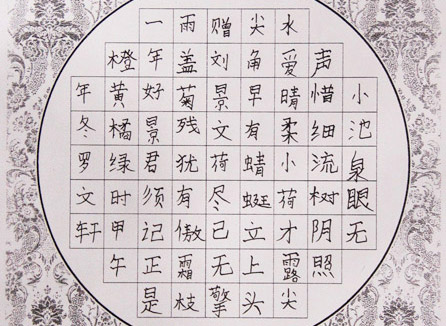 小池泉眼无
声惜细流树阴照
水爱晴柔小荷才露尖
尖角早有蜻蜓立上头
赠刘景文荷尽已无擎
雨盖菊残犹有傲霜枝
一年好景君须记正是
橙黄橘绿时甲午
年冬罗文轩